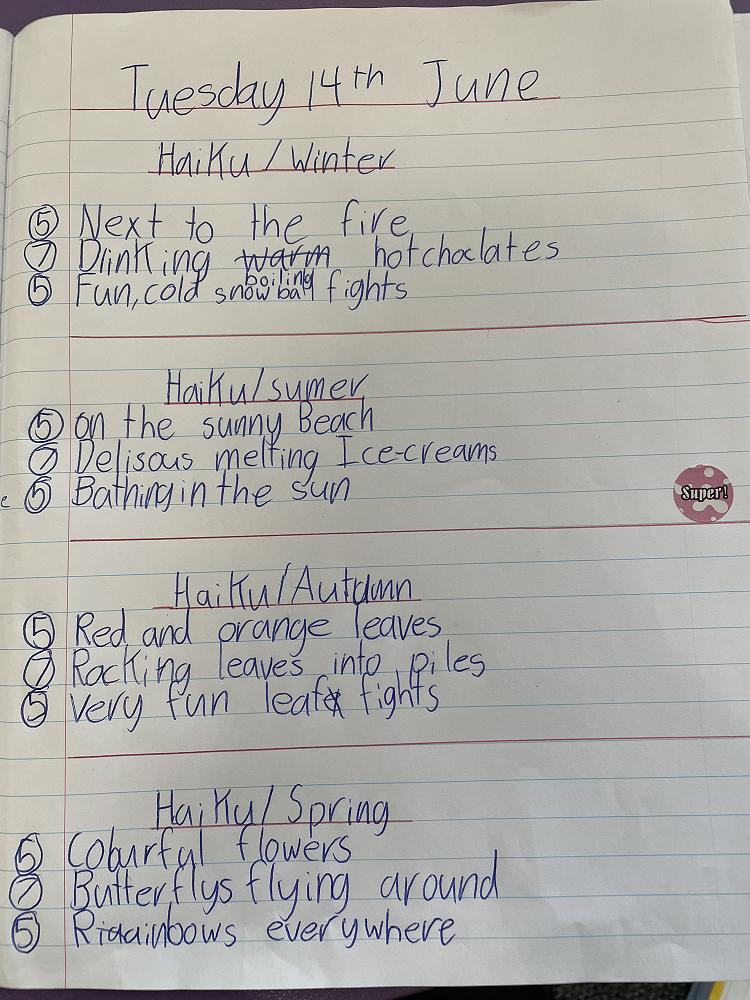 Tuesday 14th June
Haiku/Winter
5 Next to the fire
7 Drinking warm boiling hotchoclates
5 Fun, cold snow ball fights
Haiku/sumer
5 on the sunny Beach
7 Delisous melting Ice-creams
e
5 Bathing in the sun
Super!
Haiku/Autumn
5 Red and orange leaves
7 Racking leaves into piles
5 very fun leaf fights
Haiku/Spring
5 Colourful flowers
7 Butterflys flying around
5 everywhere